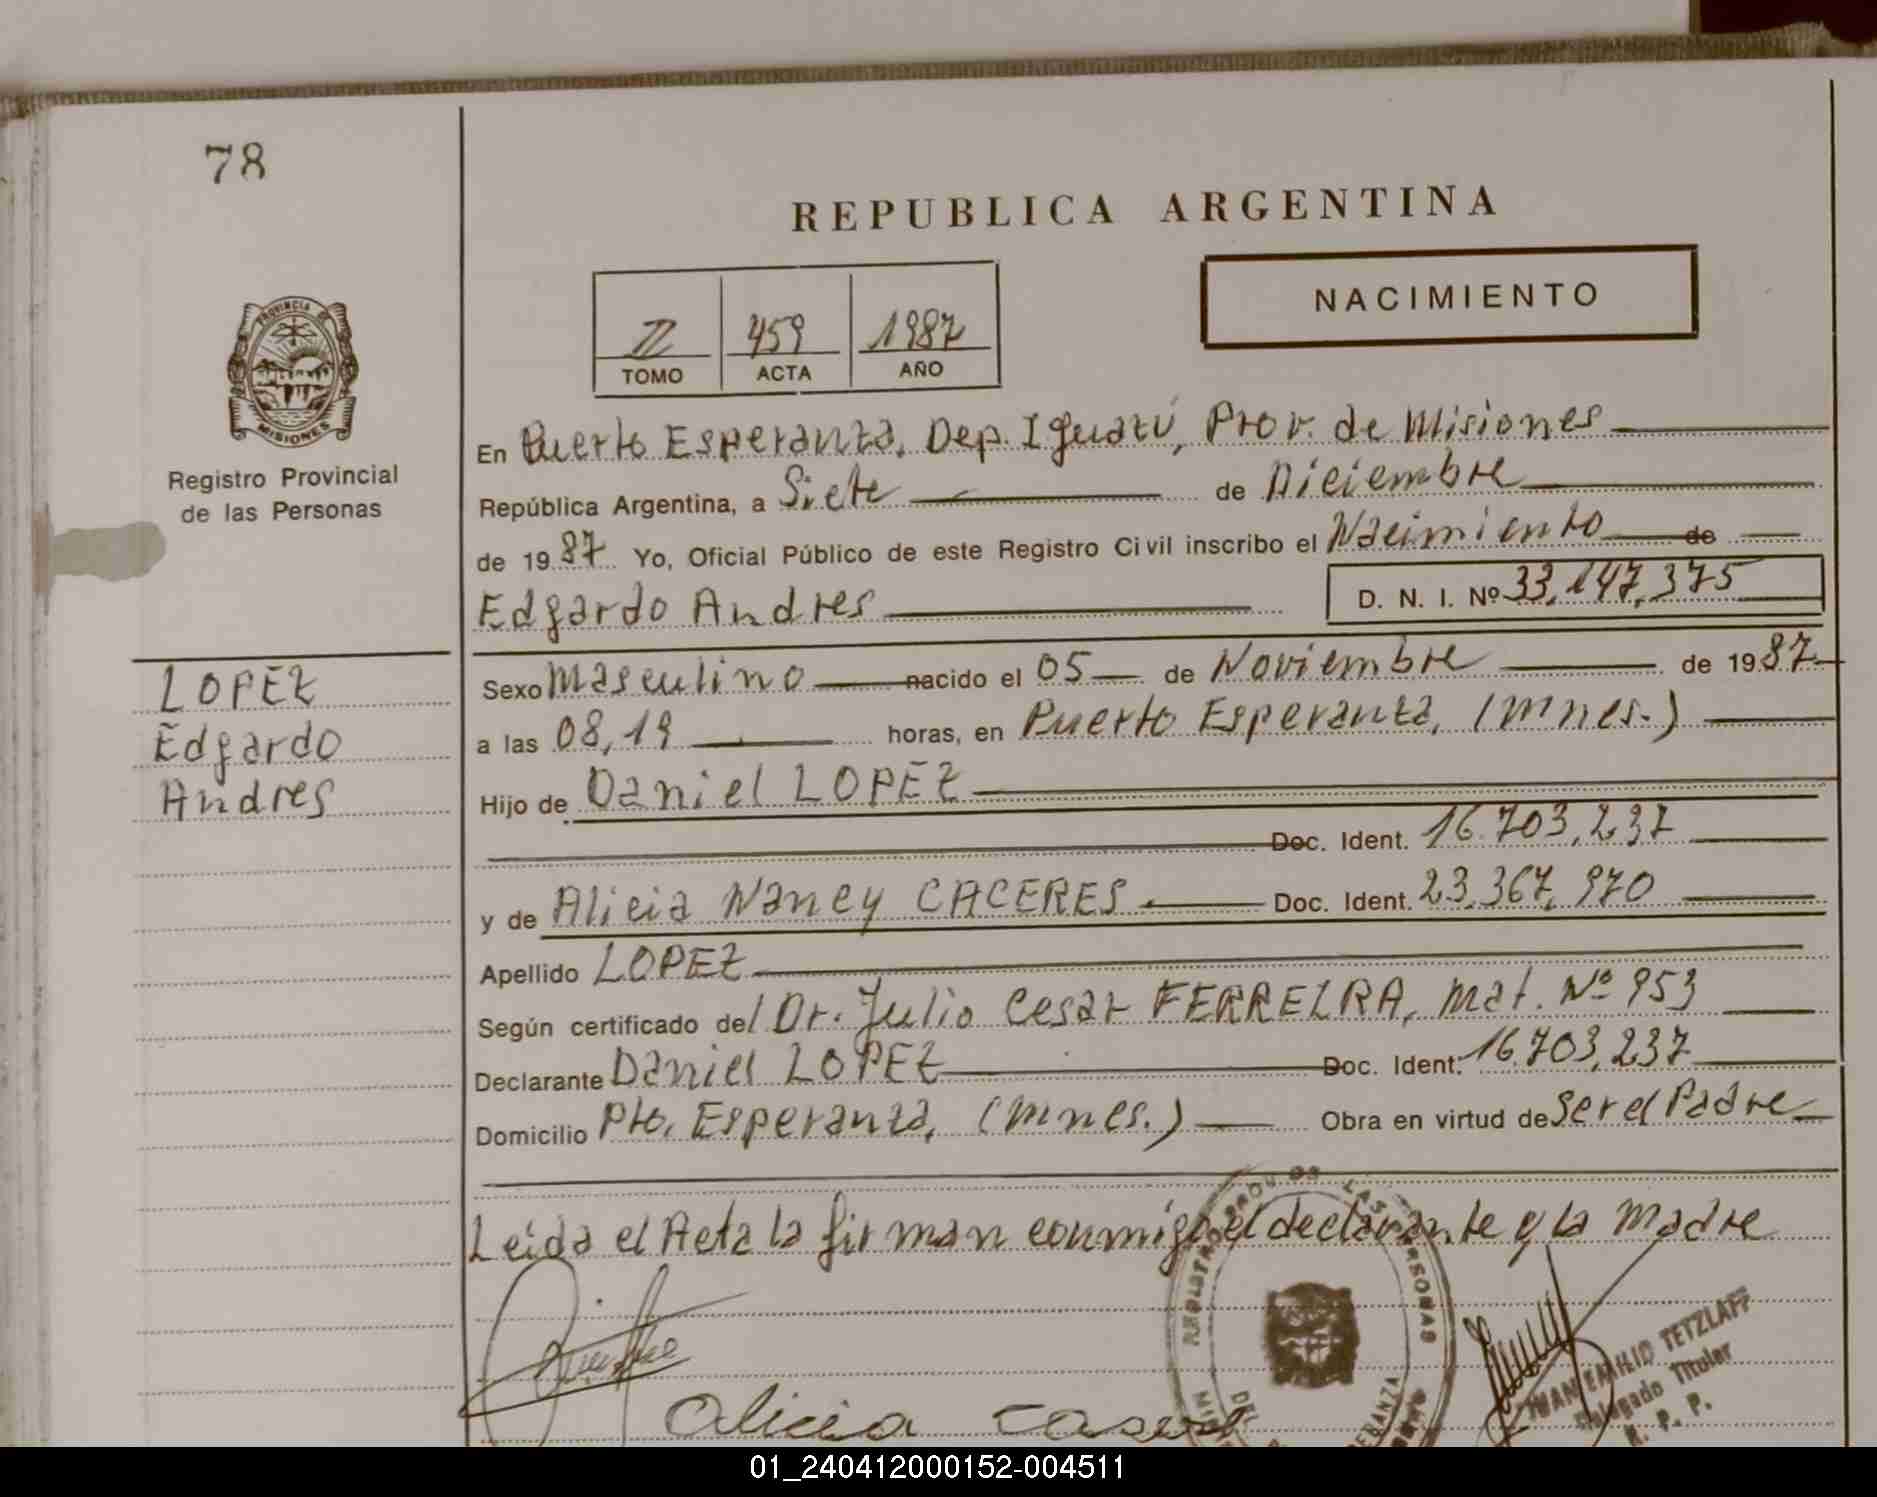 78
REPUBLICA ARGENTINA
NACIMIENTO
II 459 1987
TOMO ACTA AÑO
PROVINCIA DE
MISIONES
Registro Provincial
de las Personas
En Puerto Esperanza, Dep. Iguazú, Prov. de Misiones
República Argentina, a Siete de Diciembre
de 1987 Yo, Oficial Público de este Registro Civil inscribo el Nacimiento de
Edgardo Andres D. N. I. Nº 33,147,375
LOPEZ
Edgardo
Andres
Sexo Masculino nacido el 05 de Noviembre de 1987
a las 08,19 horas, en Puerto Esperanza, (Mnes.)
Hijo de Daniel LOPEZ
Doc. Ident. 16.703,237
y de Alicia Nancy CACERES Doc. Ident. 23.367,970
Apellido LOPEZ
Según certificado del Dr. Julio Cesar FERREIRA, Mat. Nº 953
Declarante Daniel LOPEZ Doc. Ident. 16.703,237
Domicilio Pto. Esperanza, (Mnes.) Obra en virtud de Ser el Padre
Leída el Acta la firman conmigo el declarante y la Madre
Alicia
JUAN EMILIO TETZLAFF
Delegado Titular
R. P. P.
01_240412000152-004511